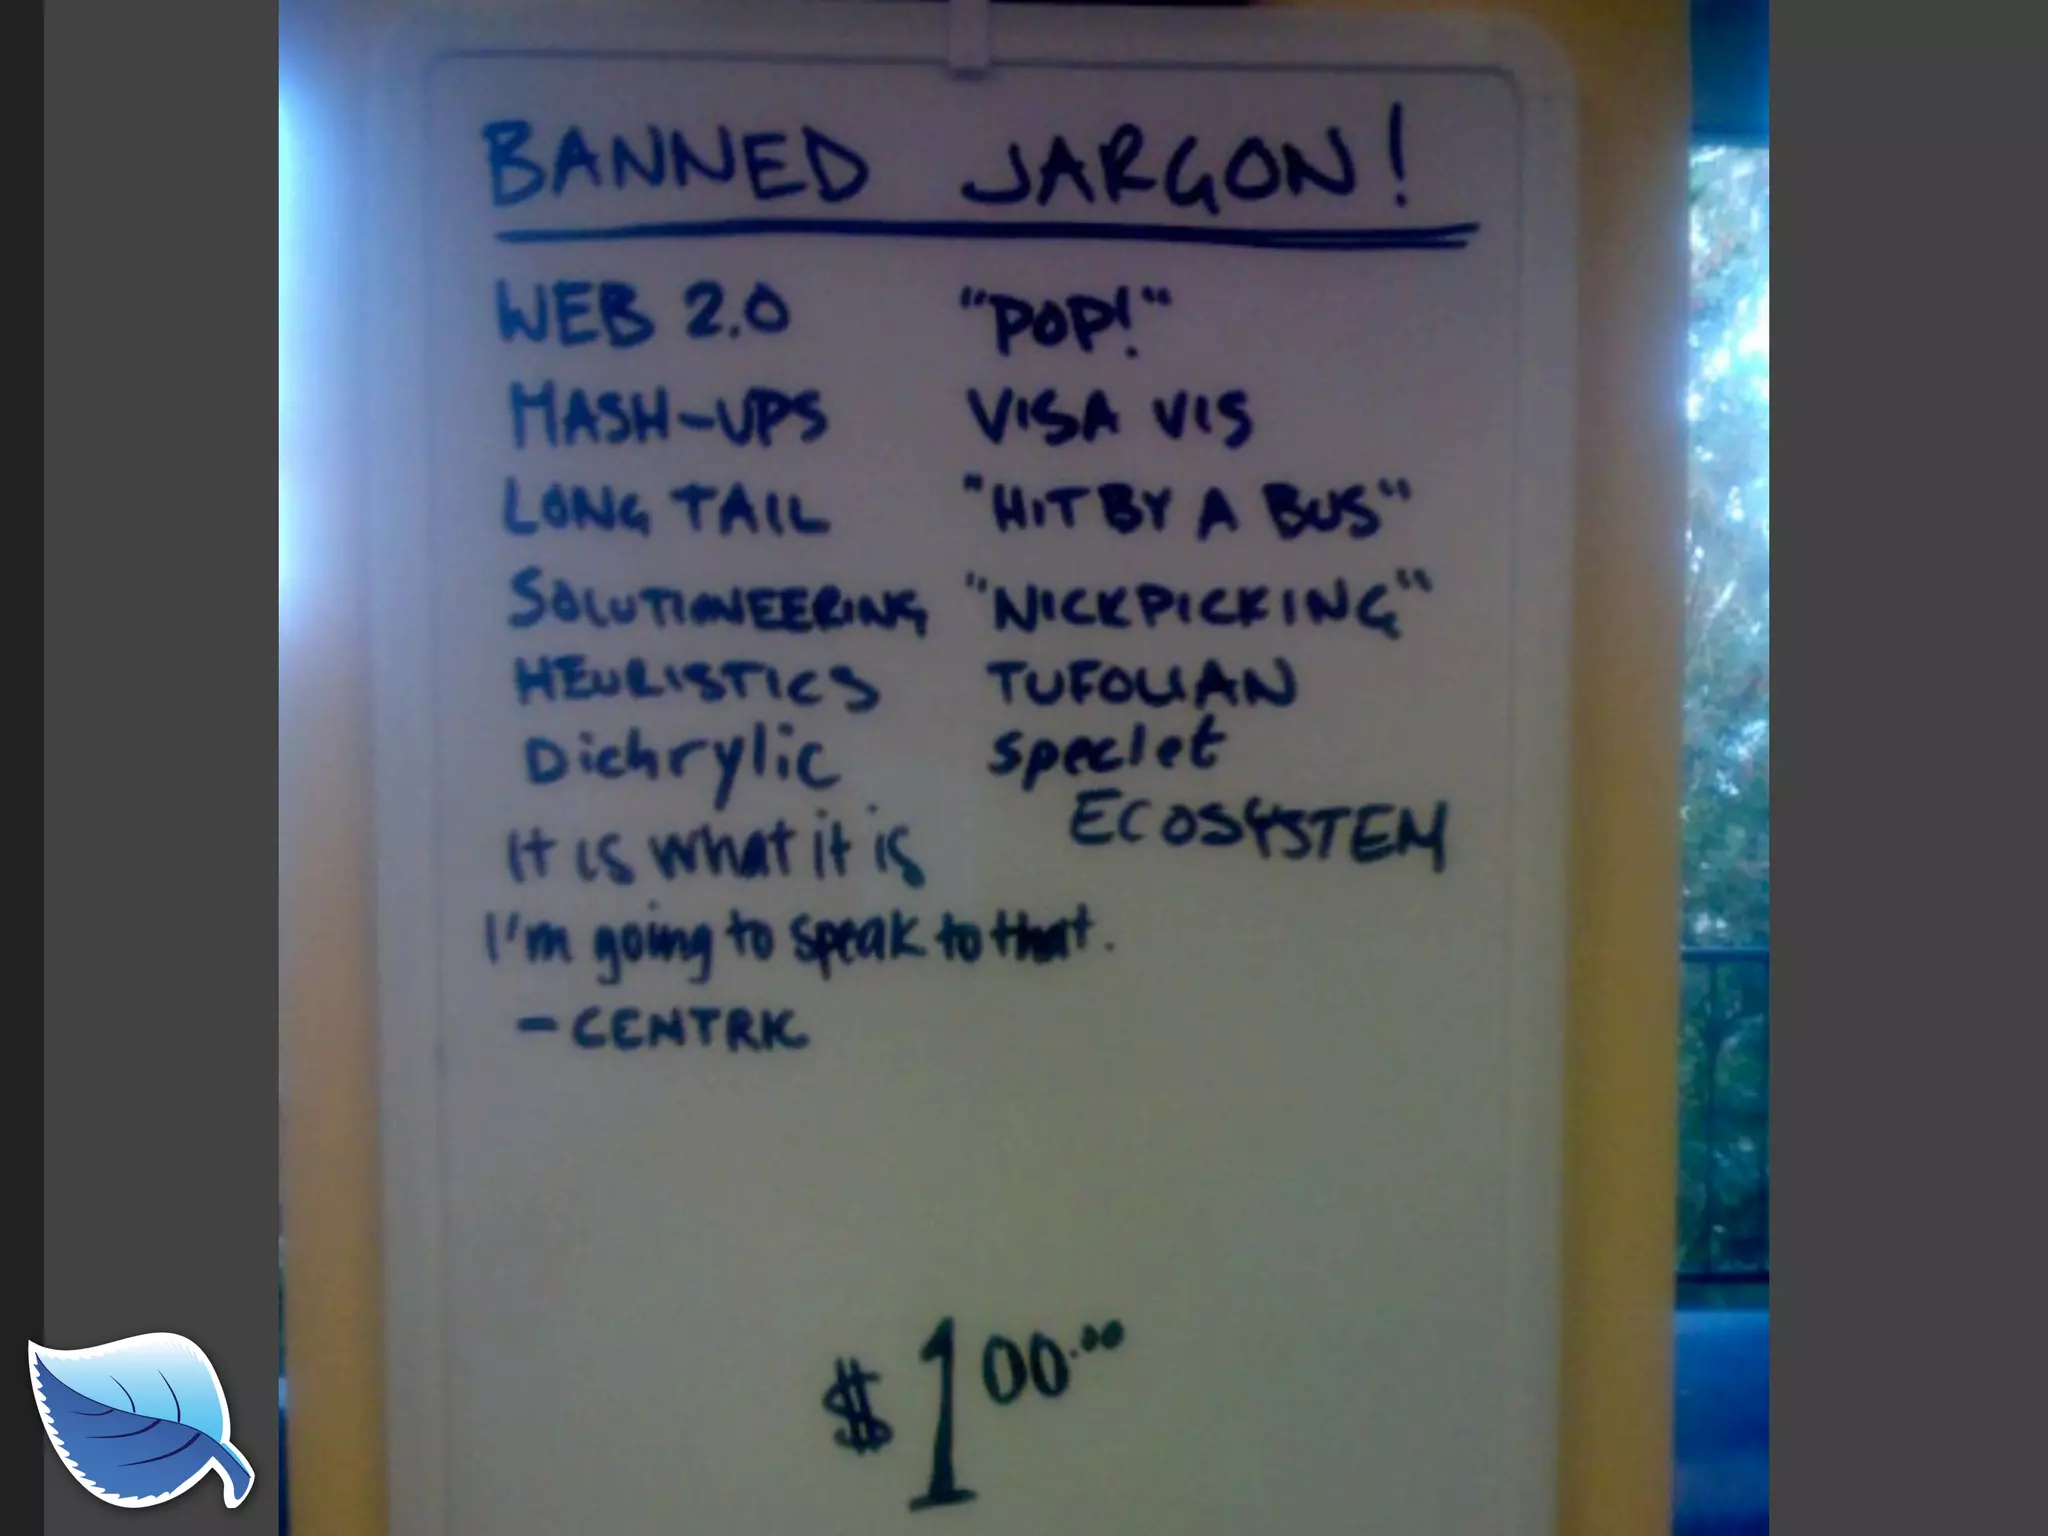 BANNED JARGON!
WEB 2.0
MASH-UPS
LONG TAIL
SOLUTIONEERING
HEURISTICS
Dichrylic
It is what it is
I'm going to speak to that.
- CENTRIC
"POP!"
VISA VIS
"HIT BY A BUS"
"NICKPICKING"
TUFOLIAN
speclet
ECOSYSTEM
$1 00.00